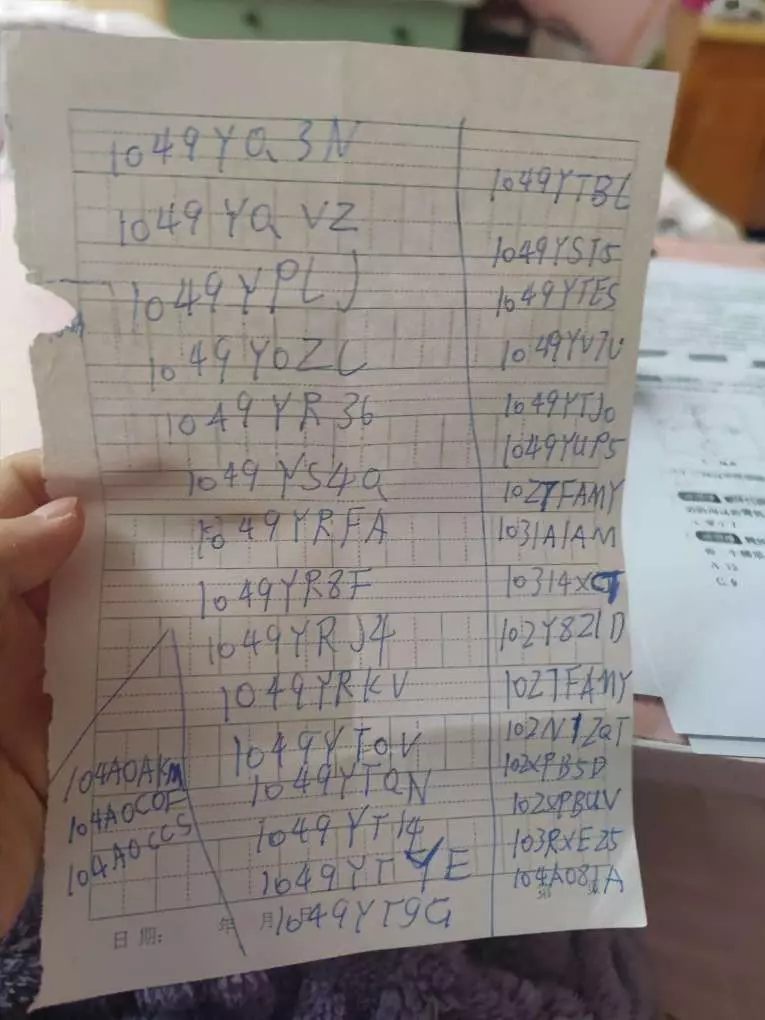 1049YQ3N
1049YQVZ
1049YPLJ
1049YOZL
1049YR36
1049YS4Q
1049YRFA
1049YR8F
1049YRJ4
1049YRKV
1049YTQV
1049YTQN
1049YT14
1049YTYE
1049YT9G
104A0AKM
104A0C0F
104A0CCS
1049YTBL
1049YST5
1049YTES
1049YV7U
1049YTJ0
1049YUPS
1027FAMY
1031A1AM
10314XCT
102Y8Z1D
1027FAMY
102N1ZQT
102XPB5D
102XPBUV
103RXEZ5
104A08TA
日期: 年 月